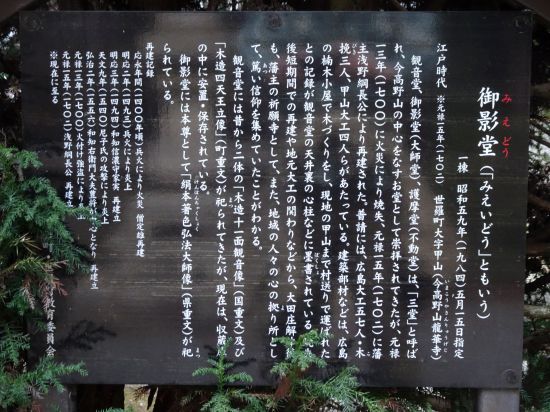 みえどう
御影堂(「みえいどう」ともいう)
一棟 昭和五九年(一九八四)五月一五日指定
江戸時代 ※元禄一五年(一七〇二) 世羅町大字甲山(今高野山龍華寺)
観音堂、御影堂(大師堂)、護摩堂(不動堂)は、「三堂」と呼ば
れ、今高野山の中心をなすお堂として崇拝されてきたが、元禄
一三年(一七〇〇)に火災により焼失、元禄一五年(一七〇二)に藩
主浅野綱長公により再建された。普請には、広島大工五七人・木
挽三人、甲山大工四人らがあたっている。建築部材などは、広島
の楠木小屋で木づくりをし、現地の甲山まで村送りで運ばれた
との記録が観音堂の天井裏の心柱などに墨書されている。
後短期間での再建や地元大工の関わりなどから、大田庄解
も、藩主の祈願寺として、また、地域の人々の心の拠り所とし
て、篤い信仰を集めていたことがわかる。
観音堂には昔から二体の「木造十一面観音像」(国重文)及び
「木造四天王立像」(町重文)が祀られてきたが、現在は、収蔵
の中に安置・保存されている。
御影堂には本尊として「絹本著色弘法大師像」(県重文)が祀
られている。
再建記録
応永年間(一四〇〇年頃)兵火により火災 僧定雄再建
明応二年(一四九三)兵火により炎上
明応三年(一四九四)和知信濃守豊実 再建立
天文九年(一五四〇)尼子氏の攻撃により炎上
弘治二年(一五五六)和知右衛門大夫豊将が中心となり 再建立
元禄一三年(一七〇〇)火付け強盗により
元禄一五年(一七〇二)浅野綱長公 再建
※現在に至る
教育委員会